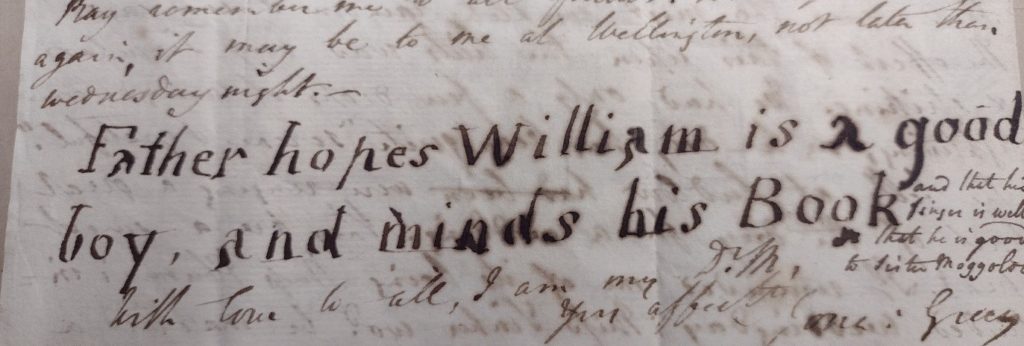 Pray remember me to all
again, it may be to me at Wellington, not later than
wednesday night. —
Father hopes William is a good
boy, and minds his Book
and that his
finger is well
& that he is good
to Sister
With love to all, I am my Dr. M,
Yrs affectly